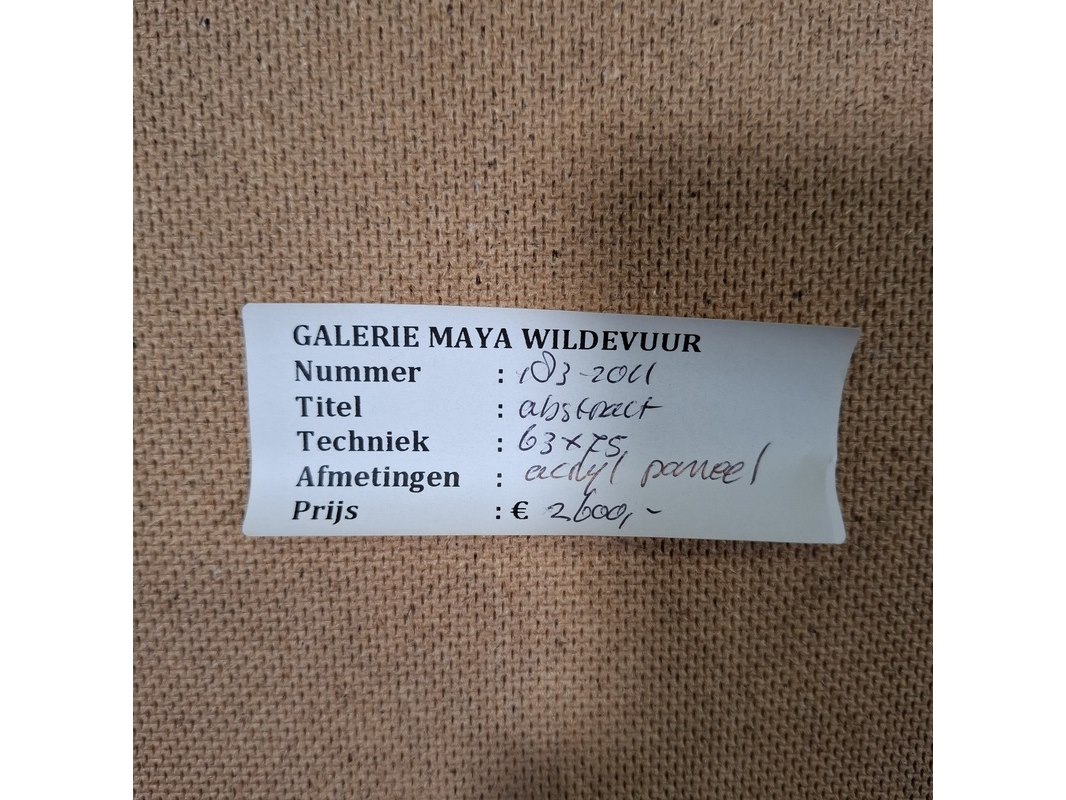 GALERIE MAYA WILDEVUUR
Nummer : 183-2011
Titel : abstract
Techniek : 63x75
Afmetingen : acryl paneel
Prijs : € 2600,-